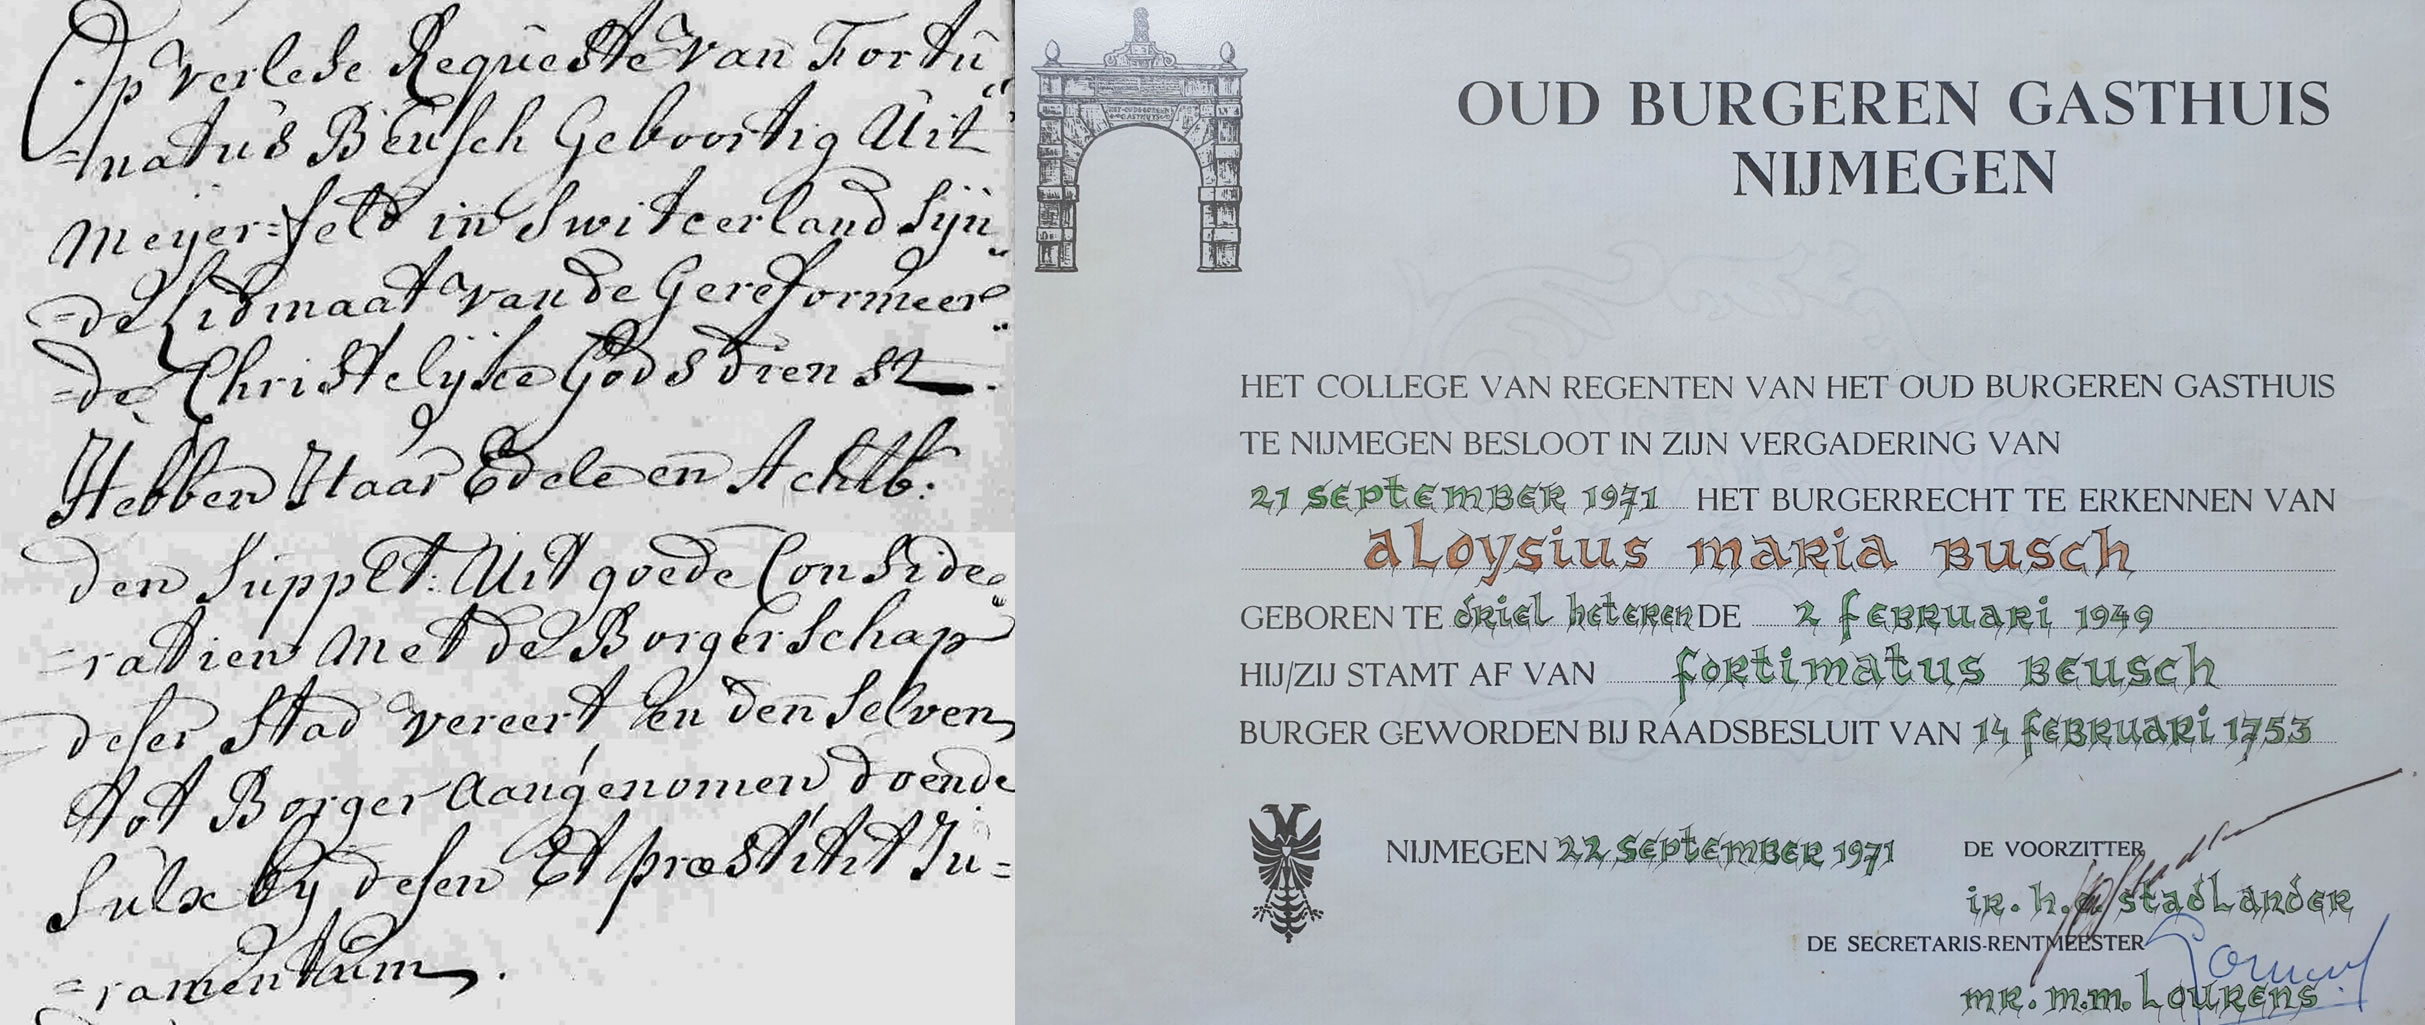 Op verlese Requeste van Fortu„
=natus Beusch Geboortig Uit
Meijer=feld in Switcerland Sijn„
=de Lidmaat van de Gereformeer„
=de Christelijke Godsdienst.
Hebben Haar Edele en Achtb:
den Supplt: Uit goede Conside„
=ratien Met de Borgerschap
deser Stad vereert en den Selven
tot Borger aangenomen doende
Sulx by desen Et præstitit Ju=
=ramentum.
OUD BURGEREN GASTHUIS
NIJMEGEN
HET COLLEGE VAN REGENTEN VAN HET OUD BURGEREN GASTHUIS
TE NIJMEGEN BESLOOT IN ZIJN VERGADERING VAN
21 september 1971 HET BURGERRECHT TE ERKENNEN VAN
aloysius maria Busch
GEBOREN TE driel heteren DE 2 februari 1949
HIJ/ZIJ STAMT AF VAN fortimatus Beusch
BURGER GEWORDEN BIJ RAADSBESLUIT VAN 14 februari 1753
NIJMEGEN 22 september 1971
DE VOORZITTER
ir. h. stadlander
DE SECRETARIS-RENTMEESTER
mr. m.m. Lourens